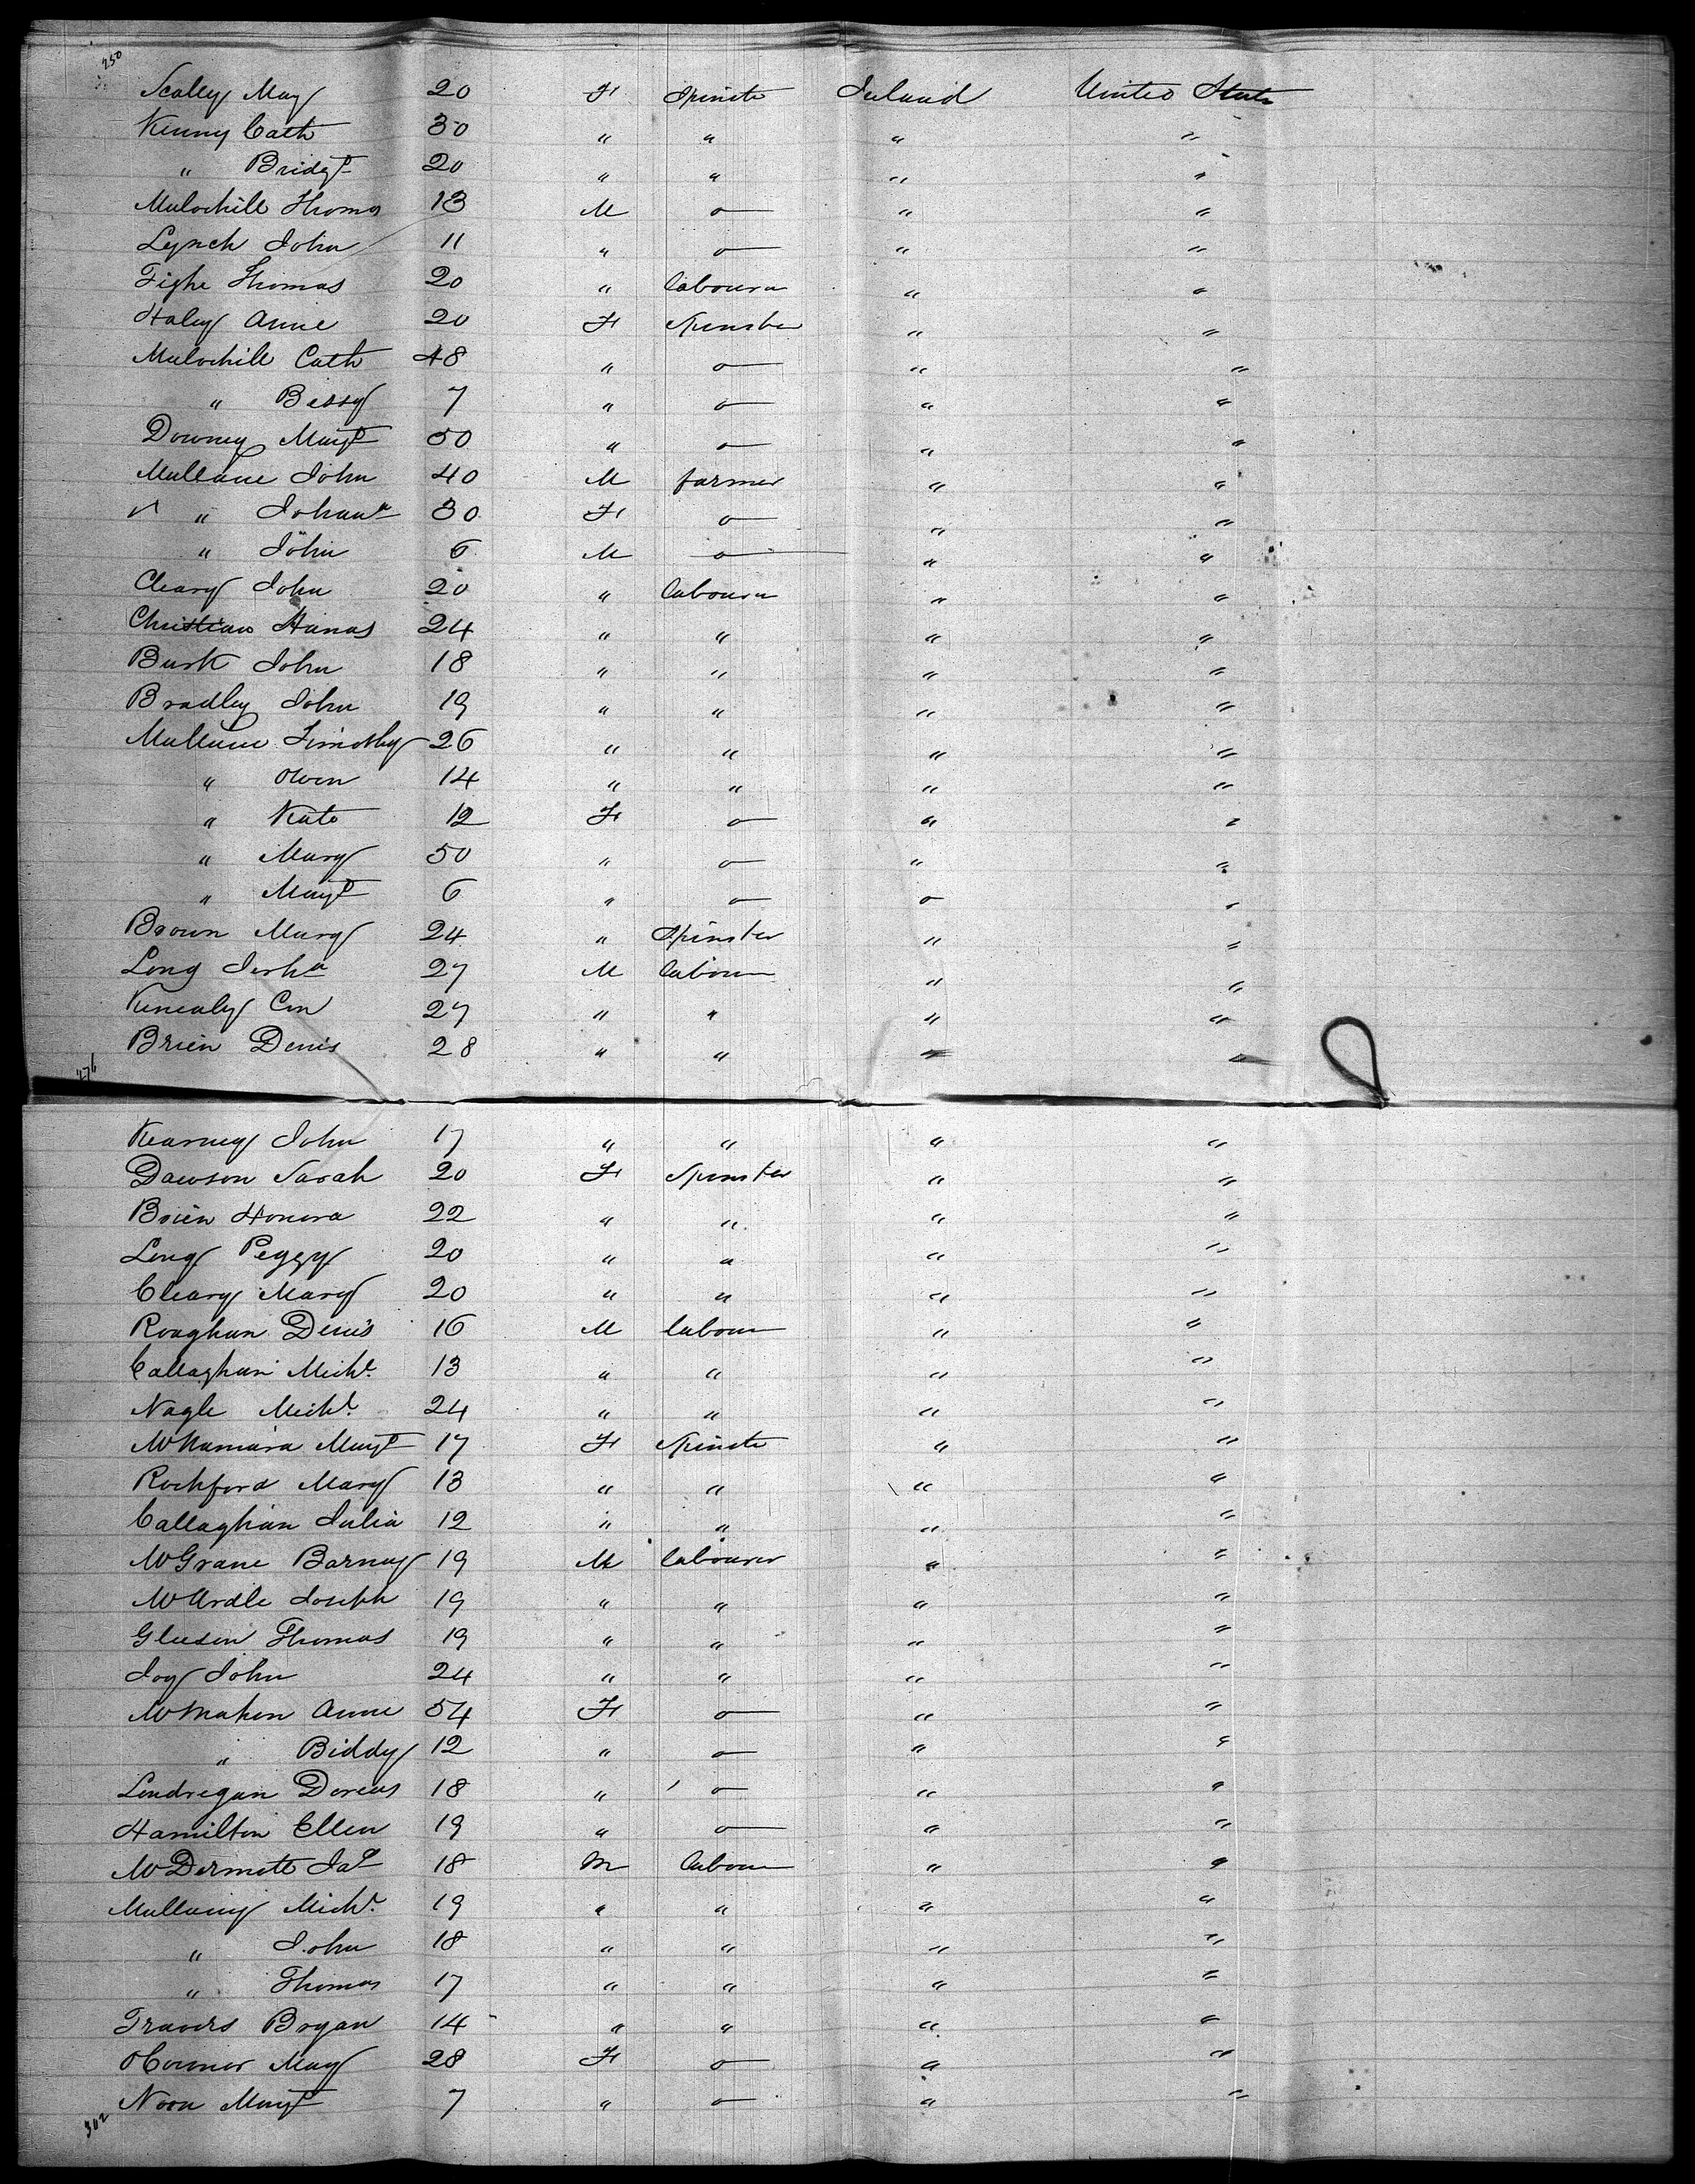 250
Scally Mary 20 F Spinste Ireland United State
Kenny Cath 30 " " " "
" Bridgt 20 " " " "
Mulvihill Thomas 13 M o " "
Lynch John 11 " o " "
Tighe Thomas 20 " laboura " "
Haley Anne 20 F Spinster " "
Mulvihill Cath 48 " o " "
" Bessy 7 " o " "
Downey Margt 50 " o " "
Mullane John 40 M farmer " "
" Johana 30 F o " "
" John 6 M o " "
Cleary John 20 " laboura " "
Christian Hanas 24 " " " "
Burk John 18 " " " "
Bradley John 19 " " " "
Mullane Timothy 26 " " " "
" Owen 14 " " " "
" Kate 12 F o " "
" Mary 50 " o " "
" Margt 6 " o o "
Brown Mary 24 " Spinster " "
Long 27 M labour " "
Kenealy Con 27 " " " "
Brien Denis 28 " " " "
276
Kearney John 17 " " " "
Dawson Sarah 20 F Spinster " "
Brien Honora 22 " " " "
Long Peggy 20 " " " "
Cleary Mary 20 " " " "
Roughan Denis 16 M labour " "
Callaghan Michl 13 " " " "
Nagle Michl 24 " " " "
McNamara Margt 17 F Spinste " "
Rochford Mary 13 " " " "
Callaghan Julia 12 " " " "
McGrane Barney 19 M labourer " "
McArdle Joseph 19 " " " "
Gleeson Thomas 19 " " " "
Joy John 24 " " " "
McMahon Anne 54 F o " "
" Biddy 12 " o " "
Londregan Dorcas 18 " o " "
Hamilton Ellen 19 " o " "
McDermott Jas 18 M labour " "
Mullany Michl 19 " " " "
" John 18 " " " "
" Thomas 17 " " " "
Travers Bryan 14 " " " "
OConnor Mary 28 F o " "
Noon Margt 7 " o " "
302